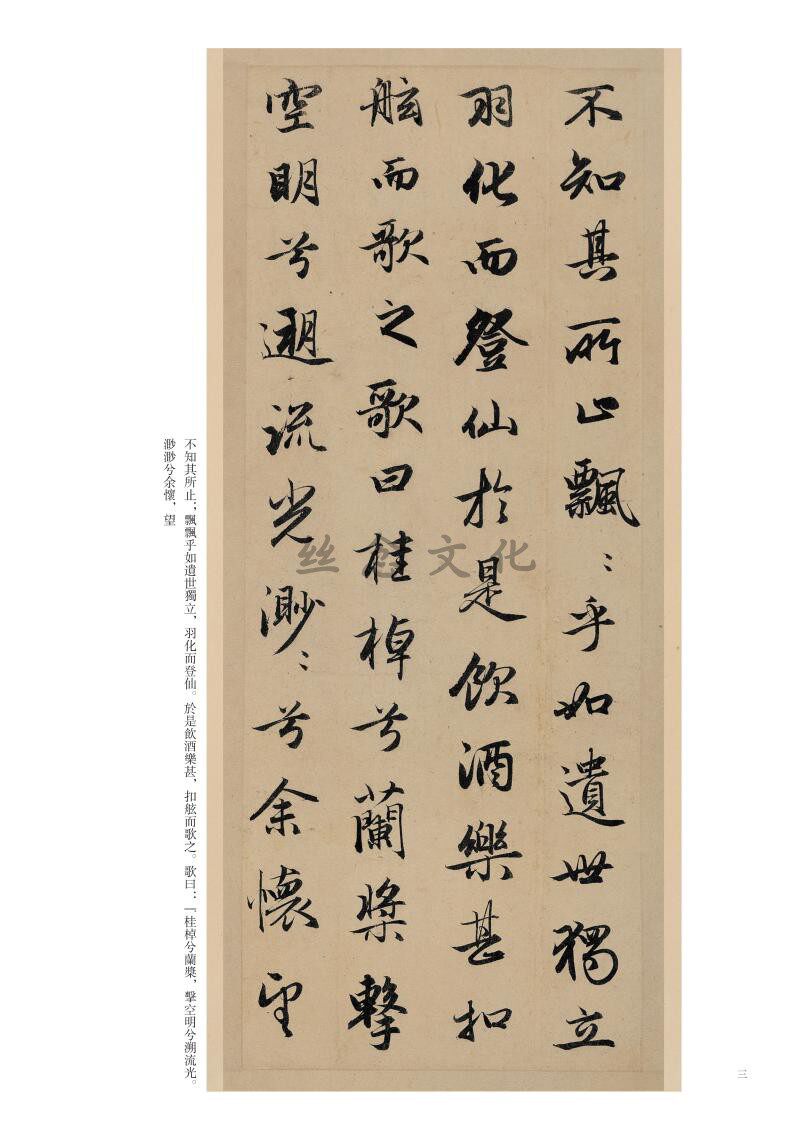 不知其所止飄〻乎如遺世獨立
羽化而登仙於是飲酒樂甚扣
舷而歌之歌曰桂棹兮蘭槳擊
空明兮遡流光渺〻兮余懷望
絲
文化
不知其所止；飄飄乎如遺世獨立，羽化而登仙。於是飲酒樂甚，扣舷而歌之。歌曰：﹁桂棹兮蘭槳，擊空明兮溯流光。
渺渺兮余懷，望
三